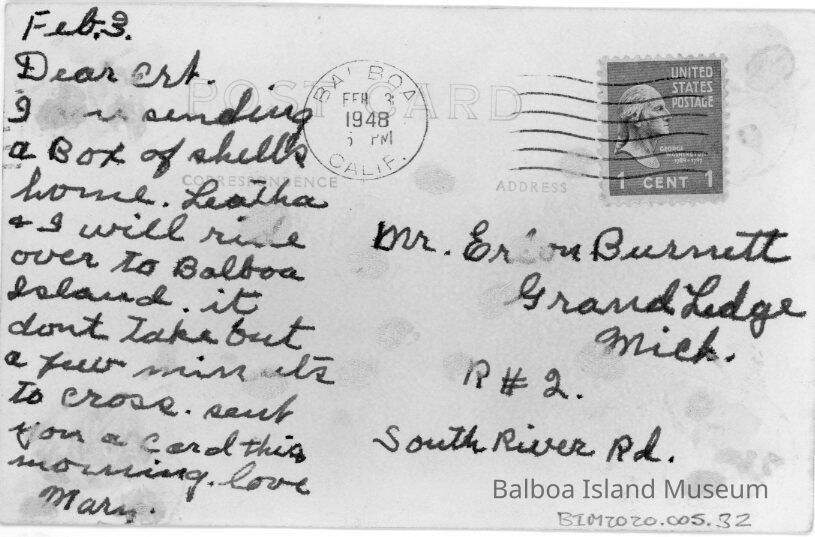 Feb. 3.
Dear Ert.
I am sending
a Box of shells
home. Leatha
& I will ride
over to Balboa
Island. it
dont take but
a few minuts
to cross. sent
you a card this
morning. love
Mary.
POST CARD
CORRESPONDENCE
ADDRESS
BALBOA
FEB 3
1948
PM
CALIF.
UNITED
STATES
POSTAGE
GEORGE
WASHINGTON
1 CENT 1
Mr. Burnett
Grand Ledge
Mich.
R # 2.
South River Rd.
Balboa Island Museum
BIM2020.005.32